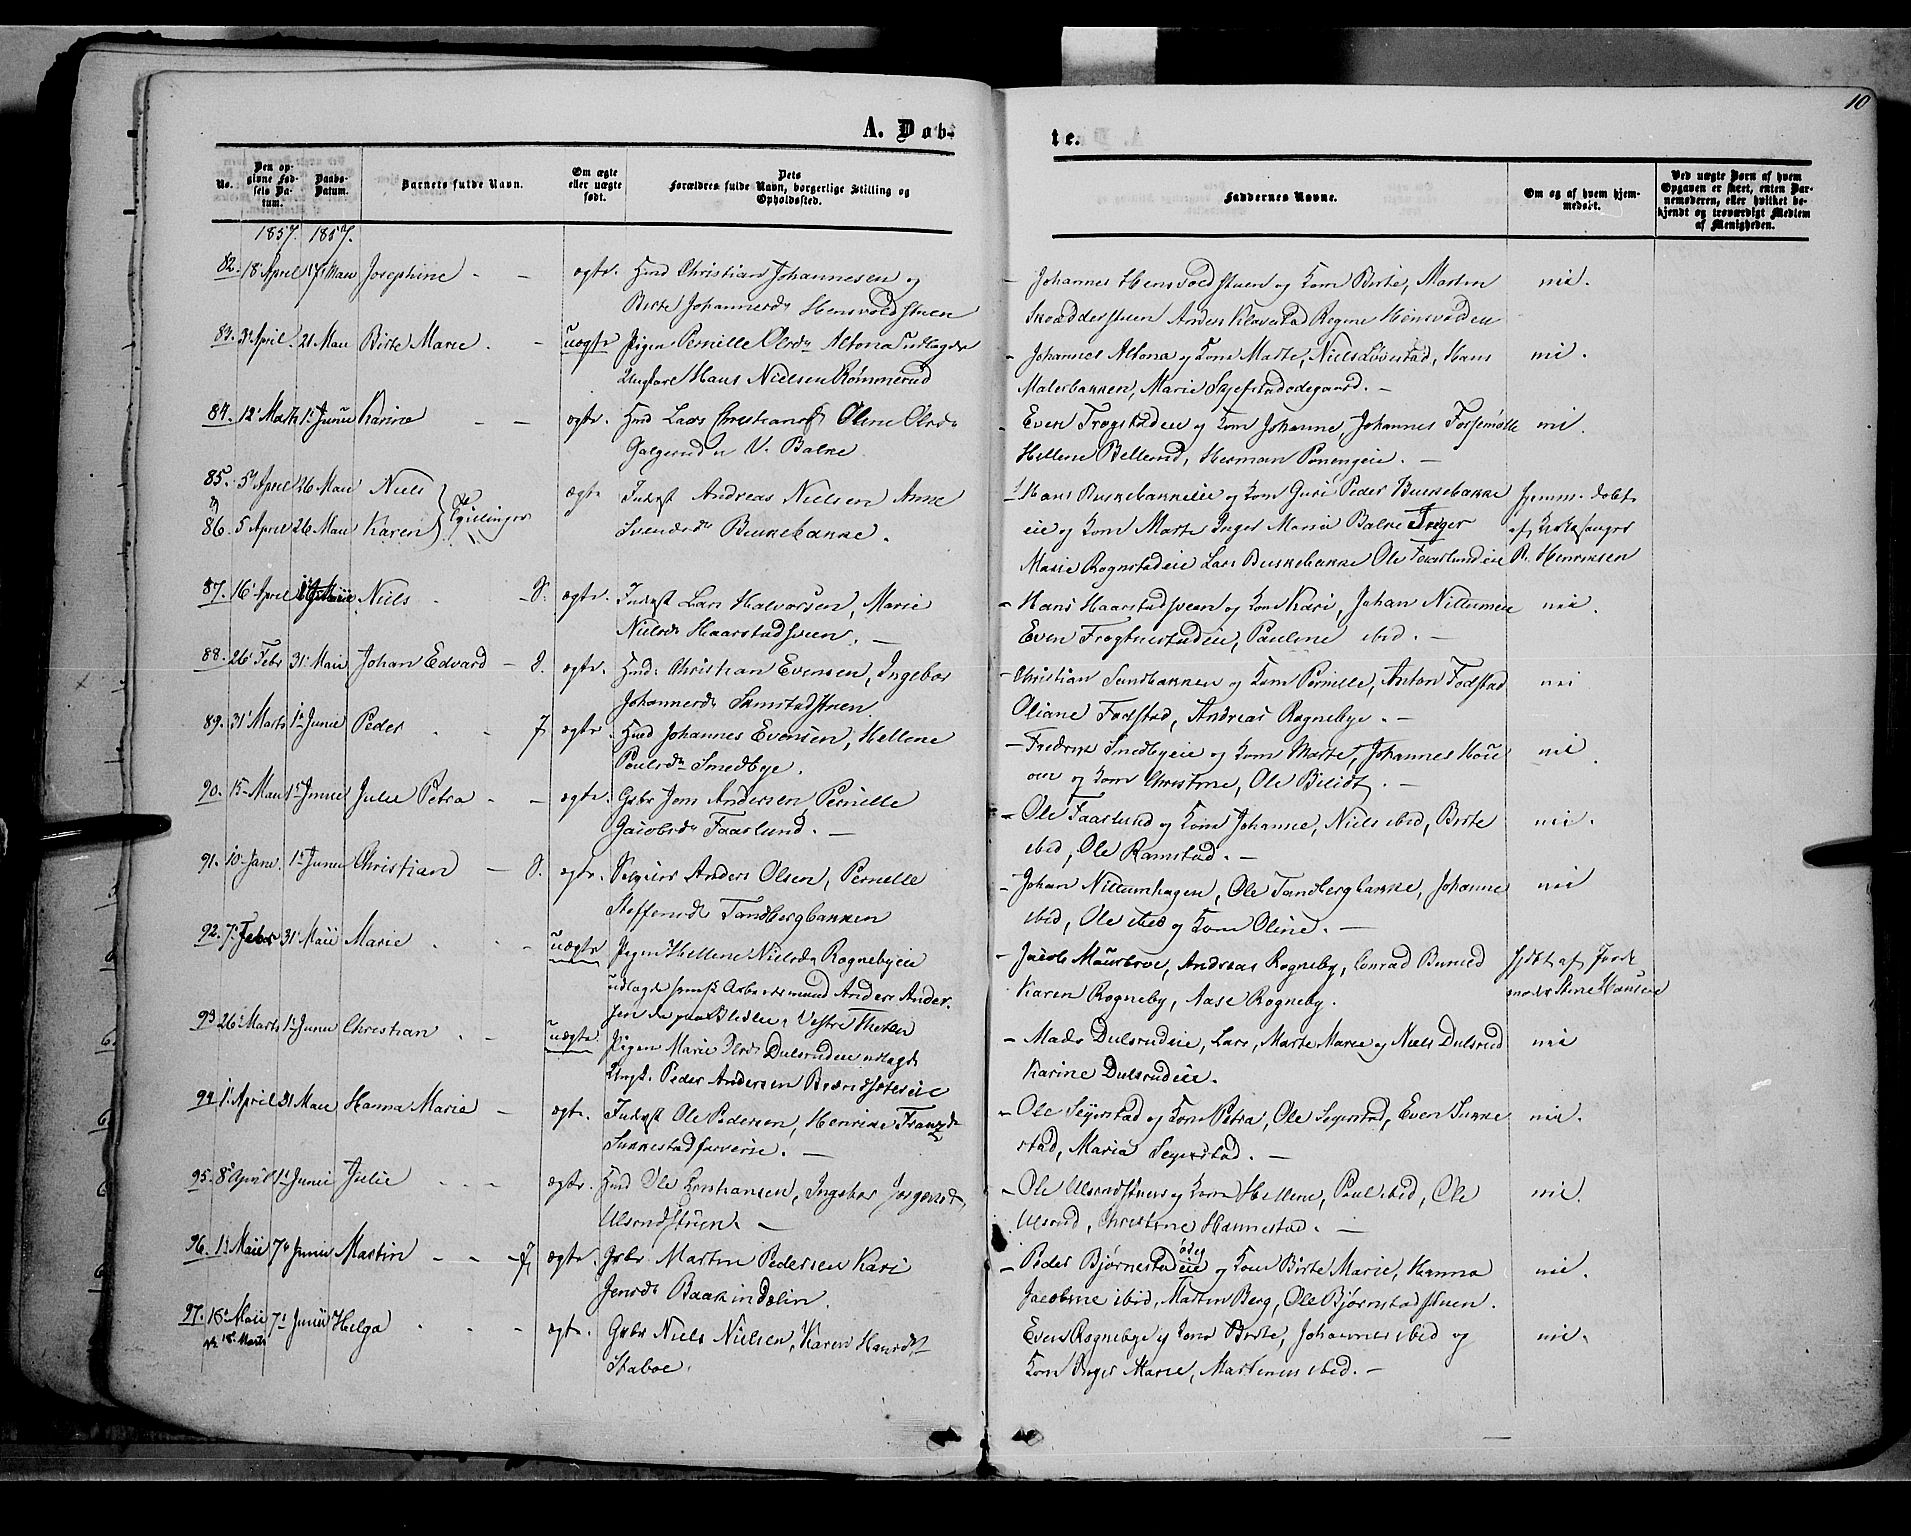 10
A. Døb-
te.
No.
Den opgivne Fødsels Datum.
Daabs-Datum.
Barnets fulde Navn.
Om ægte eller uægte født.
Dets Forældres fulde Navn, borgerlige Stilling og Opholdssted.
Faddernes Navne.
Om og af hvem hjemmedøbt.
Ved uægte Børn af hvem Opgaven er skeet, enten Barnemoderen, eller hvilket bekjendt og troværdigt Medlem af Menigheden.
1857. 1857.
82. 18 April 17 Maii Josephine - - ægte. Huusmd Christian Johannesen og
Birte Johannesdr Hensvoldstuen
- Johannes Hensvoldstuen og Kone Birte, Marten nei.
Skrædderstuen Anders Klavestad Regine Hensvolden
83. 3 April. 21 Maii Birte Marie. - uægte Pigen Pernille Olsdr Altona udlagde
Ungkarl Hans Nielsen Rømmerud
- Johannes Altona og Kone Marte, Niels Løvestad, Hans nei.
Malerbakken, Marie Skjefstadødegaard. -
84. 12 Marts 1 Junii Karine - - ægte. Huusmd Lars Christians Oline Olsdr
Galgerud u V. Balke.
- Even Frogstadeie og Kone Johanne, Johannes Forsemølle nei.
Hellene Bellerud, Herman Ponengeie. -
85. 5 April 26 Maii Niels
og
86. 5 April 26 Maii Karen Tvillinger
ægte Inderst Andreas Nielsen Anne
Svendsdr Buskebakke.
Hans Buskebakkeeie og Kone Guri Peder Buskebakke hjemmedøbt
eie og Kone Marte Inger Maria Balke Inger af Kirkesanger
Marie Rognstadeie Lars Buskebakke Ole Faaslundeie R. Henriksen
87. 16 April Maii Niels - D. ægte. Inderst Lars Halvorsen, Marie
Nielsdr Haarstadsveen. -
- Hans Haarstadsveen og Kone Kari, Johan Nillumeie nei.
Even Frogtnestadeie, Pauline ibid. -
88. 26 Febr 31 Maii Johan Edvard - D. ægte. Huusmd: Christian Evensen, Ingebor
Johannesdr Samstadstuen
- Christian Sandbakken og Kone Pernille, Anton Fodstad nei
Oliane Fodstad, Andreas Rognebye. -
89. 31 Marts 1 Junii Peder - - J ægte. Huusmd Johannes Evensen, Hellene
Poulsdr Smedbye.
- Fredrik Smedbyeie og Kone Marte, Johannes Hou nei
om og Kone Christine, Ole Bilidt. -
90. 15 Maii 1 Junii Julie Petra - - ægte. Gbr Jens Andersen Pernille
Jacobsdr Faaslund. -
- Ole Faaslund og Kone Johanne, Niels ibid, Birte nei.
ibid, Ole Ramstad. -
91. 10 Janv. 1 Junii Christian - D. ægte. Anders Olsen, Pernelle
Steffensdr Tandbergbakken
- Johan Nillumhagen, Ole Tandbergbakke, Johanne nei
ibid, Ole ibid og Kone Oline. -
92. 7 Febr 31 Maii Marie - - uægte Pigen Hellene Nielsdr Rognebyeie
udlagde svensk Arbeidsmand Anders Ander-
sen da paa Bilidt, Vestre Thoten
- Jacob Mourbroe, Andreas Rogneby, Conrad Burud hjdbt af Jorde
Karen Rogneby, Aase Rogneby. moder Stine Hansen
93. 26 Marts 1 Junii Christian - - uægte. Pigen Marie Olsdr Dulsrudeie udlagde
Ungk. Peder Andersen
- Mads Dulsrudeie, Lars, Marte Marie og Niels Dulsrud nei
Karine Dulsrudeie.
94. 1 April 31 Maii Hanna Marie - ægte. Inderst Ole Pedersen, Henrikke Franzdr
Sukkestadsveeie. -
- Ole Seyerstad og Kone Petra, Ole Seyerstad, Even Sukke nei.
stad, Maria Seyerstad. -
95. 8 April 1 Junii Julie - - - ægte. Huusmd Ole Christiansen, Ingebor Jørgensdr
Ulsrudstuen. -
- Ole Ulsrudstuen og Kone Hellene, Poul ibid, Ole nei.
Ulsrud, Christine Hannestad. -
96. 1 Maii 7 Junii Martin - - J. ægte. Gbr Martin Pedersen Kari
Jensdr Baakindalin.
- Peder Bjørnestadeie og Kone Birte Marie, Hanna nei.
Jacobine ibid, Martin Berg, Ole Bjørnstadstuen.
97. 18 Maii 7 Junii Helga - - - ægte. Gbr Niels Nielsen, Karen Hansdr
18 Marts
Staboe.
Even Rognebye og Kone Birte, Johannes ibid og nei.
Kone Inger Marie, Martinus ibid. -